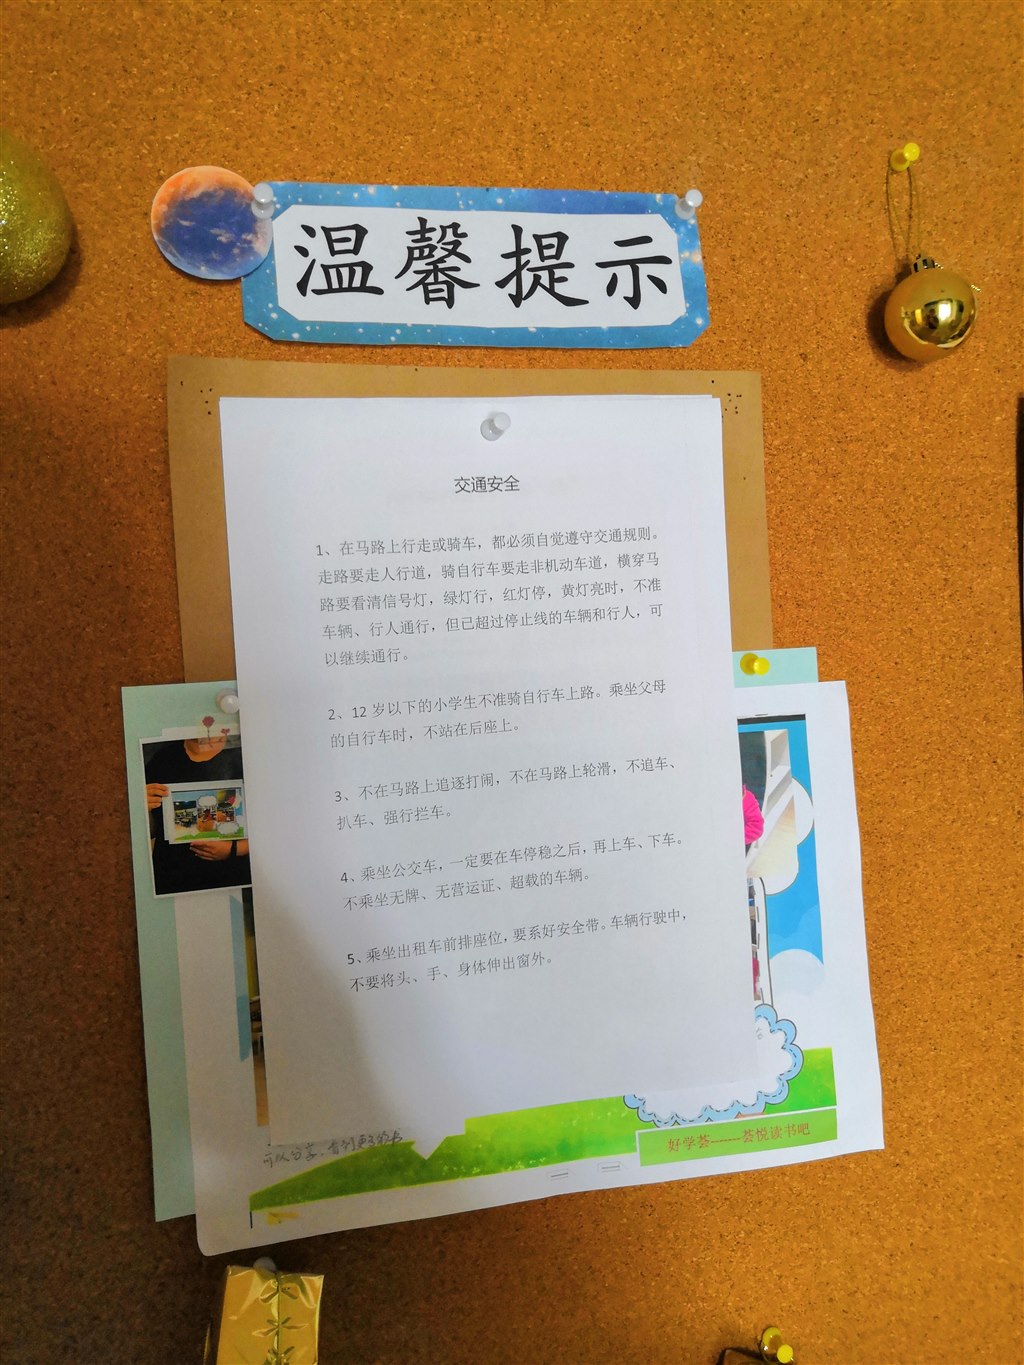 温馨提示
交通安全
1、在马路上行走或骑车，都必须自觉遵守交通规则。
走路要走人行道，骑自行车要走非机动车道，横穿马
路要看清信号灯，绿灯行，红灯停，黄灯亮时，不准
车辆、行人通行，但已超过停止线的车辆和行人，可
以继续通行。
2、12岁以下的小学生不准骑自行车上路。乘坐父母
的自行车时，不站在后座上。
3、不在马路上追逐打闹，不在马路上轮滑，不追车、
扒车、强行拦车。
4、乘坐公交车，一定要在车停稳之后，再上车、下车。
不乘坐无牌、无营运证、超载的车辆。
5、乘坐出租车前排座位，要系好安全带。车辆行驶中，
不要将头、手、身体伸出窗外。
好学荟------荟悦读书吧